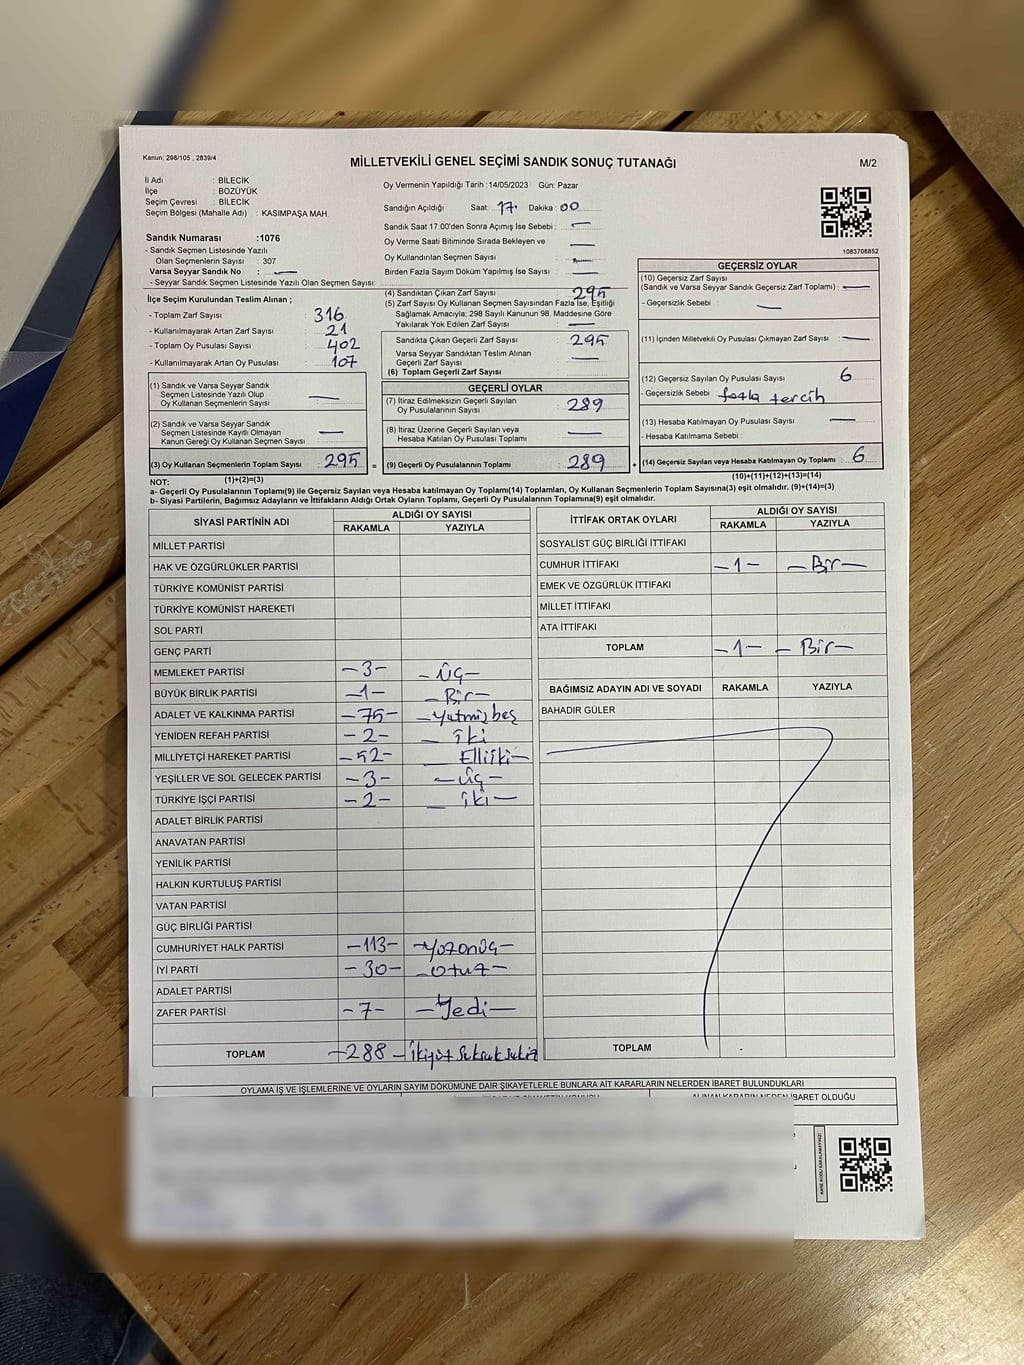 Kanun; 298/105 , 2839/4
MİLLETVEKİLİ GENEL SEÇİMİ SANDIK SONUÇ TUTANAĞI
M/2
İl Adı : BİLECİK
İlçe : BOZÜYÜK
Seçim Çevresi : BİLECİK
Seçim Bölgesi (Mahalle Adı) : KASIMPAŞA MAH.
Oy Vermenin Yapıldığı Tarih :14/05/2023 Gün: Pazar
Sandığın Açıldığı Saat: 17. Dakika : 00
Sandık Saat 17:00'den Sonra Açımış İse Sebebi : —
Oy Verme Saati Bitiminde Sırada Bekleyen ve —
Oy Kullandırılan Seçmen Sayısı : —
Birden Fazla Sayım Döküm Yapılmış İse Sayısı : —
1083708852
Sandık Numarası :1076
- Sandık Seçmen Listesinde Yazılı
Olan Seçmenlerin Sayısı : 307
Varsa Seyyar Sandık No : —
- Seyyar Sandık Seçmen Listesinde Yazılı Olan Seçmen Sayısı:
İlçe Seçim Kurulundan Teslim Alınan ;
- Toplam Zarf Sayısı : 316
- Kullanılmayarak Artan Zarf Sayısı : 21
- Toplam Oy Pusulası Sayısı : 402
- Kullanılmayarak Artan Oy Pusulası : 107
(1) Sandık ve Varsa Seyyar Sandık
Seçmen Listesinde Yazılı Olup
Oy Kullanan Seçmenlerin Sayısı : —
(2) Sandık ve Varsa Seyyar Sandık
Seçmen Listesinde Kayıtlı Olmayan
Kanun Gereği Oy Kullanan Seçmen Sayısı : —
(3) Oy Kullanan Seçmenlerin Toplam Sayısı : 295 =
(1)+(2)=(3)
(4) Sandıktan Çıkan Zarf Sayısı : 295
(5) Zarf Sayısı Oy Kullanan Seçmen Sayısından Fazla İse, Eşitliği
Sağlamak Amacıyla; 298 Sayılı Kanunun 98. Maddesine Göre
Yakılarak Yok Edilen Zarf Sayısı : —
Sandıkta Çıkan Geçerli Zarf Sayısı : 295
Varsa Seyyar Sandıktan Teslim Alınan
Geçerli Zarf Sayısı : —
(6) Toplam Geçerli Zarf Sayısı :
GEÇERLİ OYLAR
(7) İtiraz Edilmeksizin Geçerli Sayılan
Oy Pusulalarının Sayısı : 289
(8) İtiraz Üzerine Geçerli Sayılan veya
Hesaba Katılan Oy Pusulası Toplamı : —
(9) Geçerli Oy Pusulalarının Toplamı : 289 +
GEÇERSİZ OYLAR
(10) Geçersiz Zarf Sayısı
(Sandık ve Varsa Seyyar Sandık Geçersiz Zarf Toplamı) : —
- Geçersizlik Sebebi : —
(11) İçinden Milletvekili Oy Pusulası Çıkmayan Zarf Sayısı : —
(12) Geçersiz Sayılan Oy Pusulası Sayısı : 6
- Geçersizlik Sebebi : fazla tercih
(13) Hesaba Katılmayan Oy Pusulası Sayısı : —
- Hesaba Katılmama Sebebi :
(14) Geçersiz Sayılan veya Hesaba Katılmayan Oy Toplamı : 6
(10)+(11)+(12)+(13)=(14)
NOT:
a- Geçerli Oy Pusulalarının Toplamı(9) ile Geçersiz Sayılan veya Hesaba katılmayan Oy Toplamı(14) Toplamları, Oy Kullanan Seçmenlerin Toplam Sayısına(3) eşit olmalıdır. (9)+(14)=(3)
b- Siyasi Partilerin, Bağımsız Adayların ve İttifakların Aldığı Ortak Oyların Toplamı, Geçerli Oy Pusulalarının Toplamına(9) eşit olmalıdır.
SİYASİ PARTİNİN ADI ALDIĞI OY SAYISI
RAKAMLA YAZIYLA
MİLLET PARTİSİ
HAK VE ÖZGÜRLÜKLER PARTİSİ
TÜRKİYE KOMÜNİST PARTİSİ
TÜRKİYE KOMÜNİST HAREKETİ
SOL PARTİ
GENÇ PARTİ
MEMLEKET PARTİSİ -3- -Üç-
BÜYÜK BİRLİK PARTİSİ -1- -Bir-
ADALET VE KALKINMA PARTİSİ -75- -Yetmişbeş
YENİDEN REFAH PARTİSİ -2- -İki
MİLLİYETÇİ HAREKET PARTİSİ -52- Elliiki-
YEŞİLLER VE SOL GELECEK PARTİSİ -3- -Üç-
TÜRKİYE İŞÇİ PARTİSİ -2- -İki-
ADALET BİRLİK PARTİSİ
ANAVATAN PARTİSİ
YENİLİK PARTİSİ
HALKIN KURTULUŞ PARTİSİ
VATAN PARTİSİ
GÜÇ BİRLİĞİ PARTİSİ
CUMHURİYET HALK PARTİSİ -113- -Yüzonüç-
İYİ PARTİ -30- -Otuz-
ADALET PARTİSİ
ZAFER PARTİSİ -7- -Yedi-
TOPLAM -288- İkiyüz Seksen Sekiz
İTTİFAK ORTAK OYLARI ALDIĞI OY SAYISI
RAKAMLA YAZIYLA
SOSYALİST GÜÇ BİRLİĞİ İTTİFAKI
CUMHUR İTTİFAKI -1- -Bir-
EMEK VE ÖZGÜRLÜK İTTİFAKI
MİLLET İTTİFAKI
ATA İTTİFAKI
TOPLAM -1- -Bir-
BAĞIMSIZ ADAYIN ADI VE SOYADI RAKAMLA YAZIYLA
BAHADIR GÜLER
TOPLAM
OYLAMA İŞ VE İŞLEMLERİNE VE OYLARIN SAYIM DÖKÜMÜNE DAİR ŞİKAYETLERLE BUNLARA AİT KARARLARIN NELERDEN İBARET BULUNDUKLARI
ALINAN KARARIN NEDEN İBARET OLDUĞU